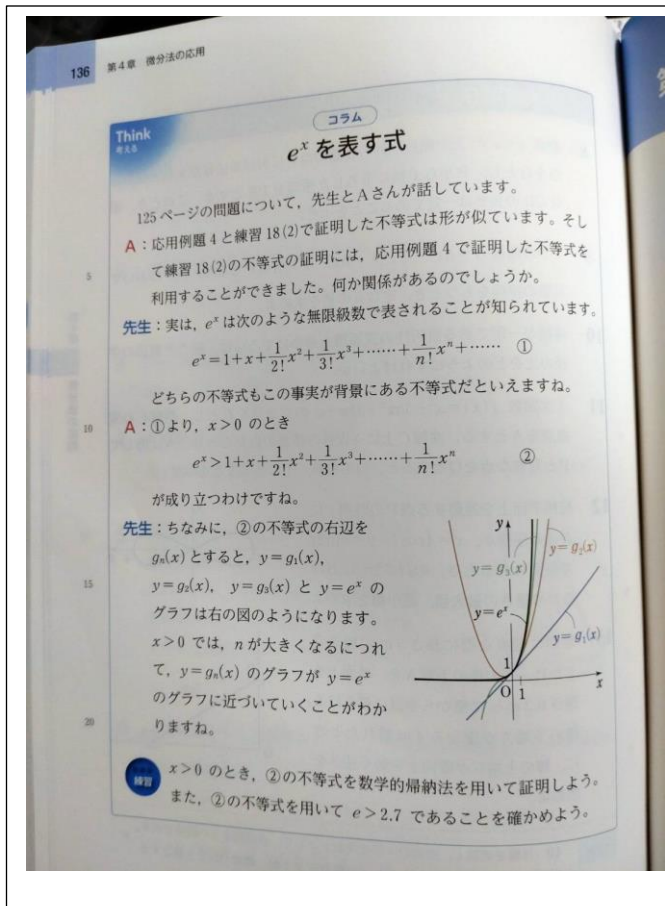 136
第4章 微分法の応用
Think
考える
コラム
e^x を表す式
125ページの問題について，先生とAさんが話しています。
A：応用例題4と練習18(2)で証明した不等式は形が似ています。そし
て練習18(2)の不等式の証明には，応用例題4で証明した不等式を
5
利用することができました。何か関係があるのでしょうか。
先生：実は，e^x は次のような無限級数で表されることが知られています。
e^x=1+x+\frac{1}{2!}x^2+\frac{1}{3!}x^3+……+\frac{1}{n!}x^n+…… ①
どちらの不等式もこの事実が背景にある不等式だといえますね。
10
A：①より，x>0 のとき
e^x>1+x+\frac{1}{2!}x^2+\frac{1}{3!}x^3+……+\frac{1}{n!}x^n ②
が成り立つわけですね。
先生：ちなみに，②の不等式の右辺を
g_n(x) とすると，y=g_1(x)，
15
y=g_2(x)， y=g_3(x) と y=e^x の
グラフは右の図のようになります。
x>0 では，n が大きくなるにつれ
て，y=g_n(x) のグラフが y=e^x
のグラフに近づいていくことがわか
20
りますね。
y
y=g_2(x)
y=g_3(x)
y=e^x
y=g_1(x)
1
O
1
x
練習
x>0 のとき，②の不等式を数学的帰納法を用いて証明しよう。
また，②の不等式を用いて e>2.7 であることを確かめよう。